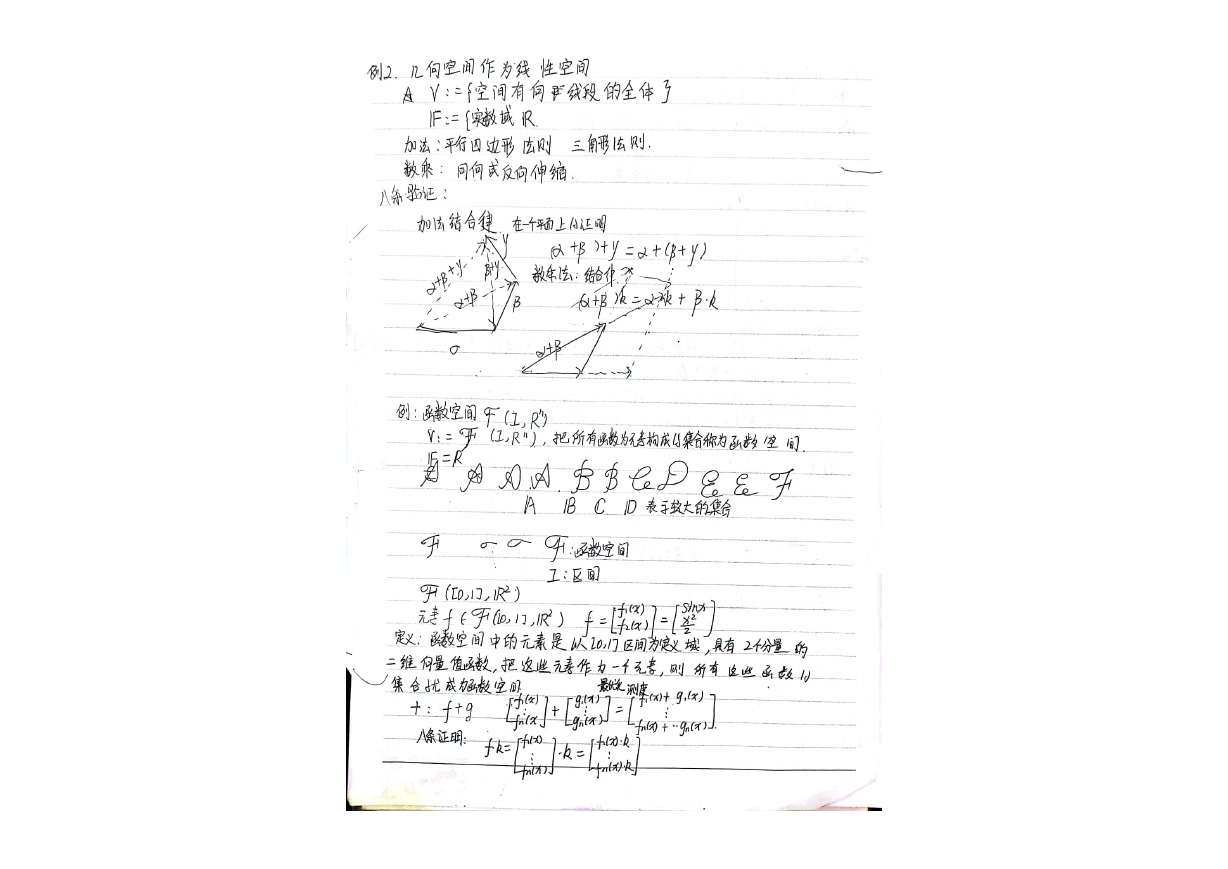 例2. 几何空间作为线性空间
V:={空间有向线段的全体}
F:={实数域 R
加法:平行四边形法则 三角形法则.
数乘: 同向或反向伸缩.
八条验证:
加法结合律 在一个平面上的证明
(α+β)+γ=α+(β+γ)
数乘法:结合律
(α+β)k=α·k+β·k
α+β+γ
β+γ
γ
α+β
β
σ
α+β
例:函数空间 F(I,Rⁿ)
V:=F(I,Rⁿ), 把所有函数为元素构成的集合称为函数空间.
F=R
A A A A B B C D E E F
A B C D 表示较大的集合
F σ σ F:函数空间
I:区间
F([0,1],R²)
元素 f∈F([0,1],R²) f=[f₁(x) f₂(x)]=[sinx x²/2]
定义:函数空间中的元素是以[0,1]区间为定义域,具有2个分量的
二维向量值函数,把这些元素作为一个元素,则所有这些函数的
集合就成为函数空间 最优化 测度
+: f+g [f₁(x) ⋮ fn(x)]+[g₁(x) ⋮ gn(x)]=[f₁(x)+g₁(x) ⋮ fn(x)+··gn(x)]
八条证明: f·k=[f₁(x) ⋮ fn(x)]·k=[f₁(x)·k ⋮ fn(x)·k]